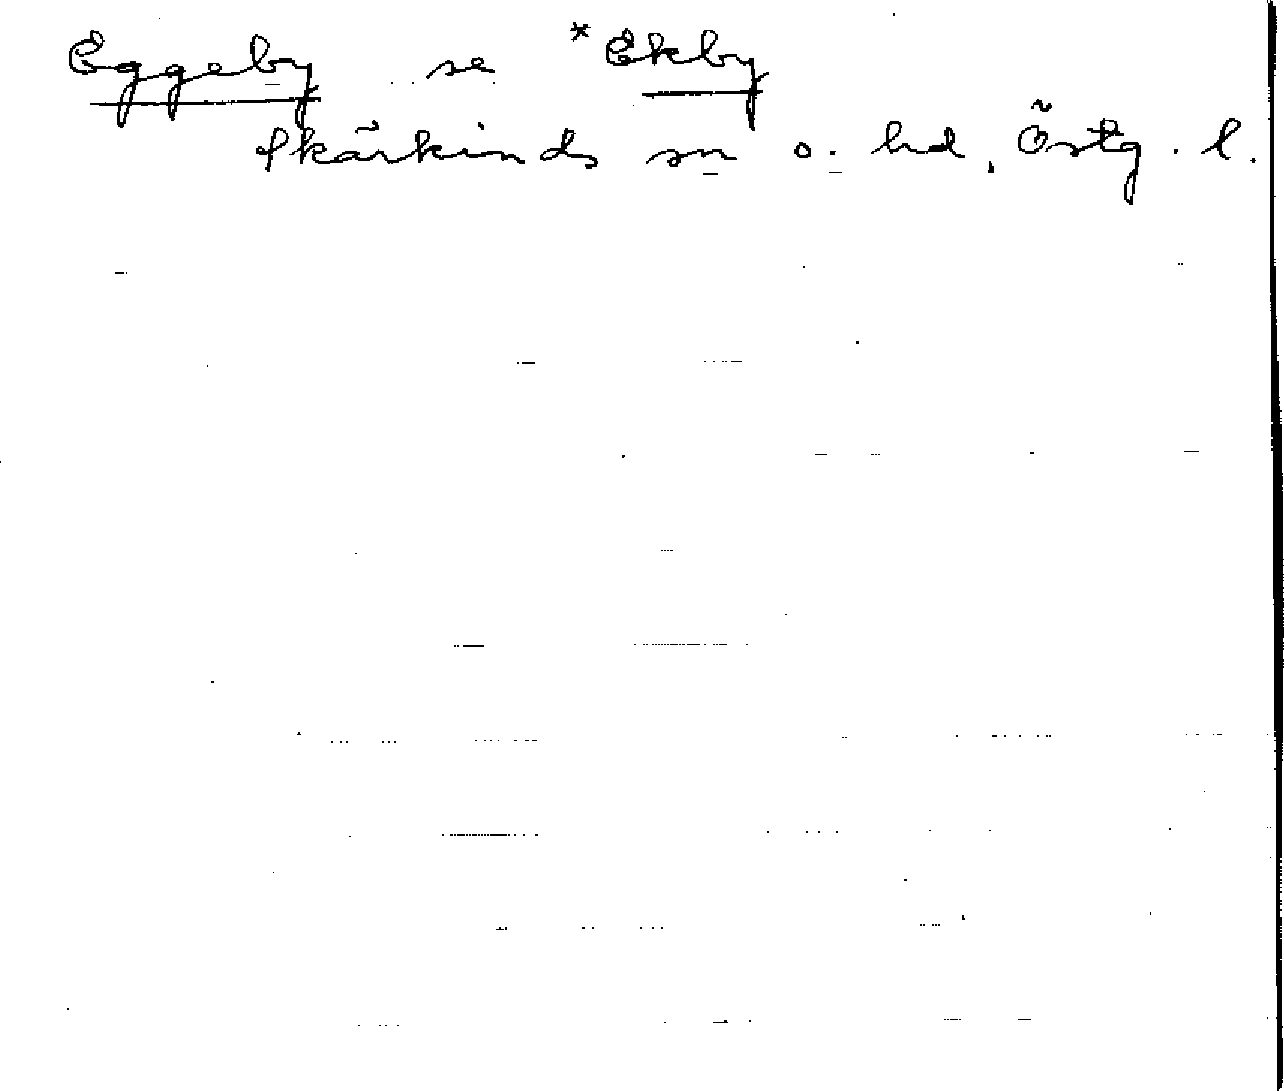 Eggeby se *Ekby
Skärkinds sn o. hd, Östg. l.